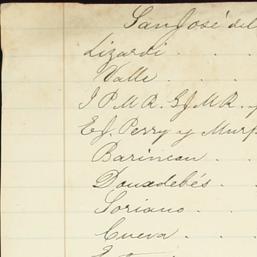 San José del
Lizardi . . .
Valle . . .
J P. M. R. G. J. M. R. y
E. J. Perry y Murp
Barineau . .
Douxdebés . .
Soriano . . .
Cueva . . .